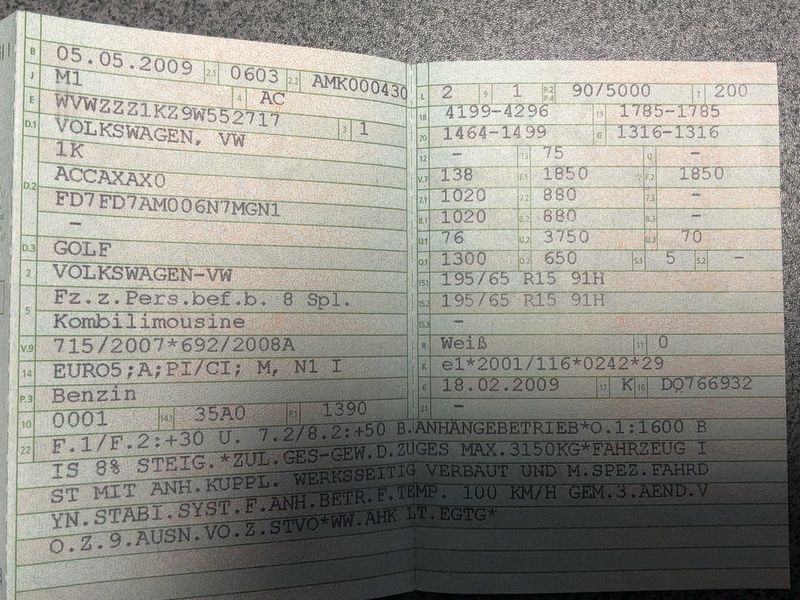 B 05.05.2009 2.1 0603 2.2 AMK000430
J M1 4 AC
E WVWZZZ1KZ9W552717 3 1
D.1 VOLKSWAGEN, VW
1K
D.2 ACCAXAX0
FD7FD7AM006N7MGN1
–
D.3 GOLF
2 VOLKSWAGEN-VW
5 Fz.z.Pers.bef.b. 8 Spl.
Kombilimousine
V.9 715/2007*692/2008A
14 EURO5;A;PI/CI; M, N1 I
P.3 Benzin
10 0001 14.1 35A0 P.1 1390
L 2 9 1 P.2 P.4 90/5000 T 200
18 4199-4296 19 1785-1785
20 1464-1499 G 1316-1316
12 – 13 75 Q –
V.7 138 F.1 1850 F.2 1850
7.1 1020 7.2 880 7.3 –
8.1 1020 8.2 880 8.3 –
U.1 76 U.2 3750 U.3 70
O.1 1300 O.2 650 S.1 5 S.2 –
15.1 195/65 R15 91H
15.2 195/65 R15 91H
15.3 –
R Weiß 11 0
K e1*2001/116*0242*29
6 18.02.2009 17 K 16 DO766932
21 –
22 F.1/F.2:+30 U. 7.2/8.2:+50 B.ANHÄNGEBETRIEB*O.1:1600 B
IS 8% STEIG.*ZUL.GES-GEW.D.ZUGES MAX.3150KG*FAHRZEUG I
ST MIT ANH.KUPPL. WERKSSEITIG VERBAUT UND M.SPEZ.FAHRD
YN.STABI.SYST.F.ANH.BETR.F.TEMP. 100 KM/H GEM.3.AEND.V
O.Z.9.AUSN.VO.Z.STVO*WW.AHK LT.EGTG*